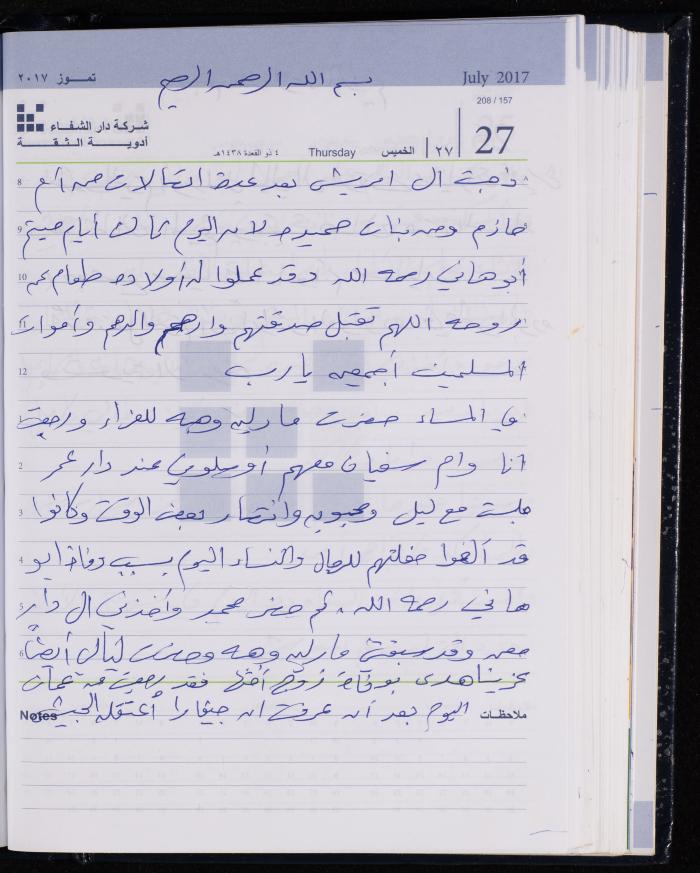 تمــوز ٢٠١٧
بسم الله الرحمن الرحيم
July 2017
208 / 157
شركة دار الشفاء
أدويــــة الـثـقــــة
27
٢٧
الخميس
Thursday
٤ ذو القعدة ١٤٣٨هـ
8 ذهبت الى بعد عدة اتصالات من أم
9 حازم ومن بنات لانه اليوم ثالث أيام ميتم
10 أبو هاني رحمه الله وقد عملوا له أولاده طعام عن
11 روحه اللهم تقبل صدقتهم وارحمهم والدهم وأموات
12 المسلمين أجمعين يا رب
1 في المساء حضرت مارلين وهبه للعزاء ورجعت
2 انا وام سفيان معهم أوصلوني عند دار عمر
3 جلست مع ليل ومحبوبه وانتصار بعض الوقت وكانوا
4 قد ألغوا حفلتهم للرجال والنساء اليوم بسبب وفاة ابو
5 هاني رحمه الله. ثم حضر محمد وأخذني الى دار
6 معن وقد سبقت مارلين وهبه وحضرت ليالي أيضاً
عزينا هدى بوفاة زوج أختها فقد رجعت من عمان
ملاحظات Notes اليوم بعد أن عرفت ان جيفارا أعتقله الجيش